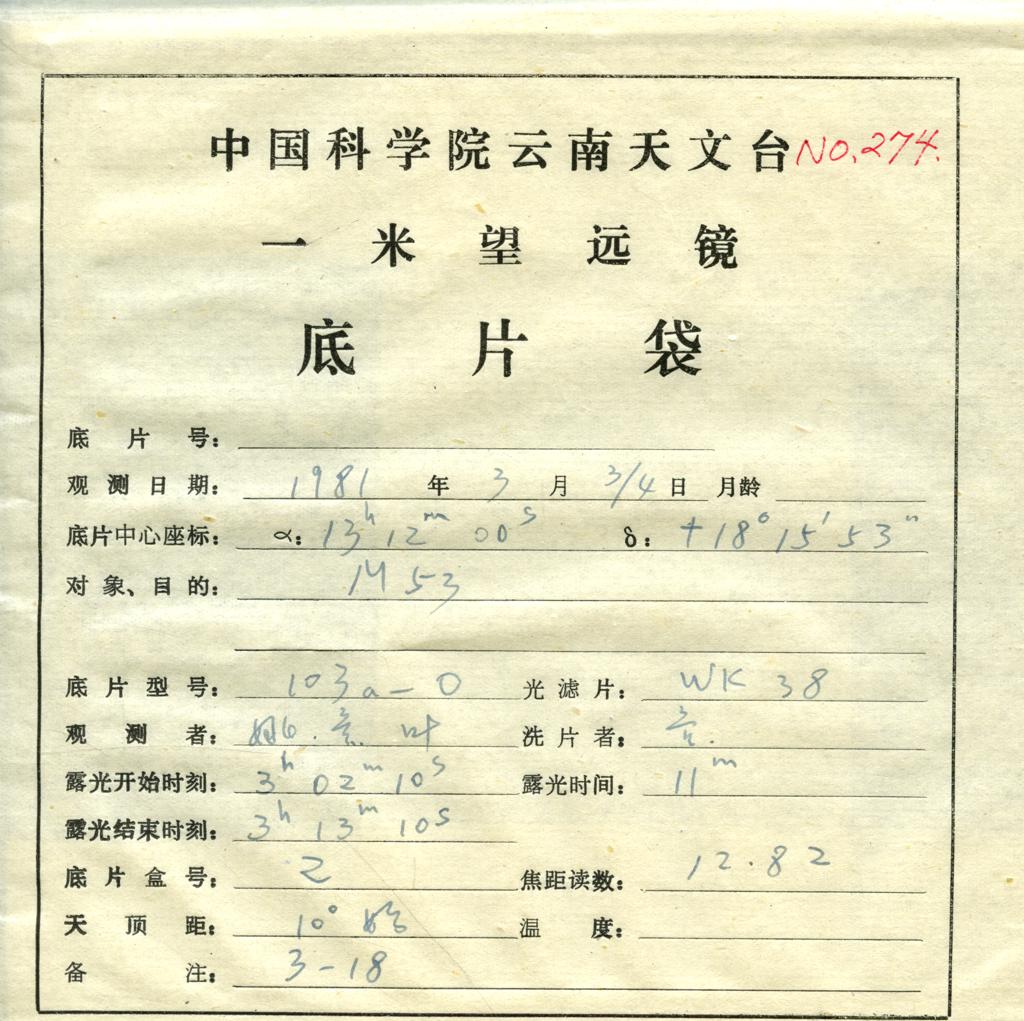 中国科学院云南天文台 NO.274.
一米望远镜
底片袋
底片号:
观测日期: 1981 年 3 月 3/4 日 月龄
底片中心座标: α: 13h 12m 00s δ: +18° 15′ 53″
对象、目的: M 53
底片型号: 103a-O 光滤片: WK 38
观测者: 叶 洗片者:
露光开始时刻: 3h 02m 10s 露光时间: 11m
露光结束时刻: 3h 13m 10s
底片盒号: 2 焦距读数: 12.82
天顶距: 10° 温度:
备注: 3-18